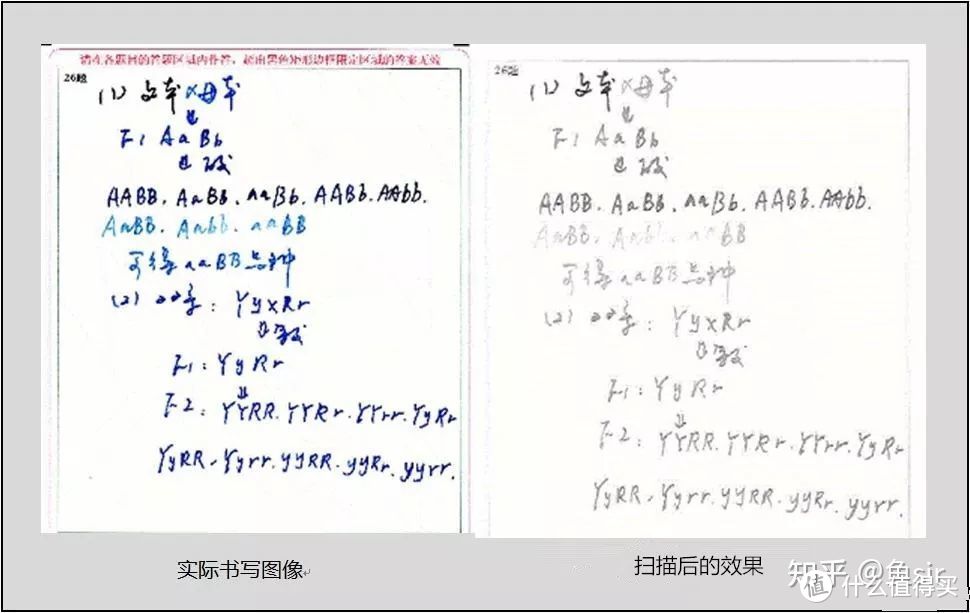 请在各题目的答题区域内作答，超出黑色矩形边框限定区域的答案无效
26题
(1) 父本×母本
F1 AaBb
AABB. AaBb. aaBb. AABb. AAbb.
AaBB. Aabb. aaBB
可得aaBB品种
(2) 双亲: Yy×Rr
F1: YyRr
F2: YYRR. YYRr. YYrr. YyRr
YyRR. Yyrr. yyRR. yyRr. yyrr.
实际书写图像
26题
(1) 父本×母本
F1 AaBb
AABB. AaBb. aaBb. AABb. AAbb.
AaBB. Aabb. aaBB
可得aaBB品种
(2) 双亲: Yy×Rr
F1: YyRr
F2: YYRR. YYRr. YYrr. YyRr
YyRR. Yyrr. yyRR. yyRr. yyrr.
扫描后的效果
知乎 @鱼sir
值 什么值得买